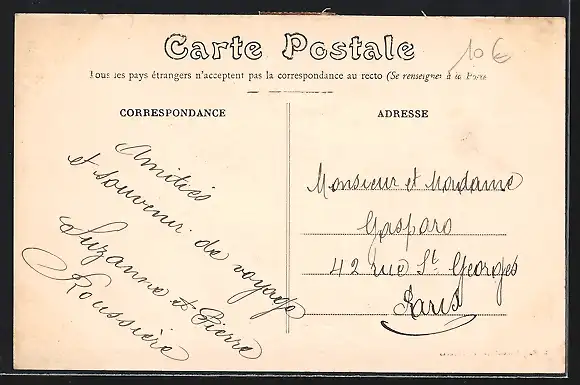 Carte Postale
10 €
Tous les pays étrangers n'acceptent pas la correspondance au recto (Se renseigner à la Poste
CORRESPONDANCE
Amitiés
et souvenir de voyage
Suzanne et Pierre
Roussière
ADRESSE
Monsieur et Madame
Gasparo
42 rue St Georges
Paris